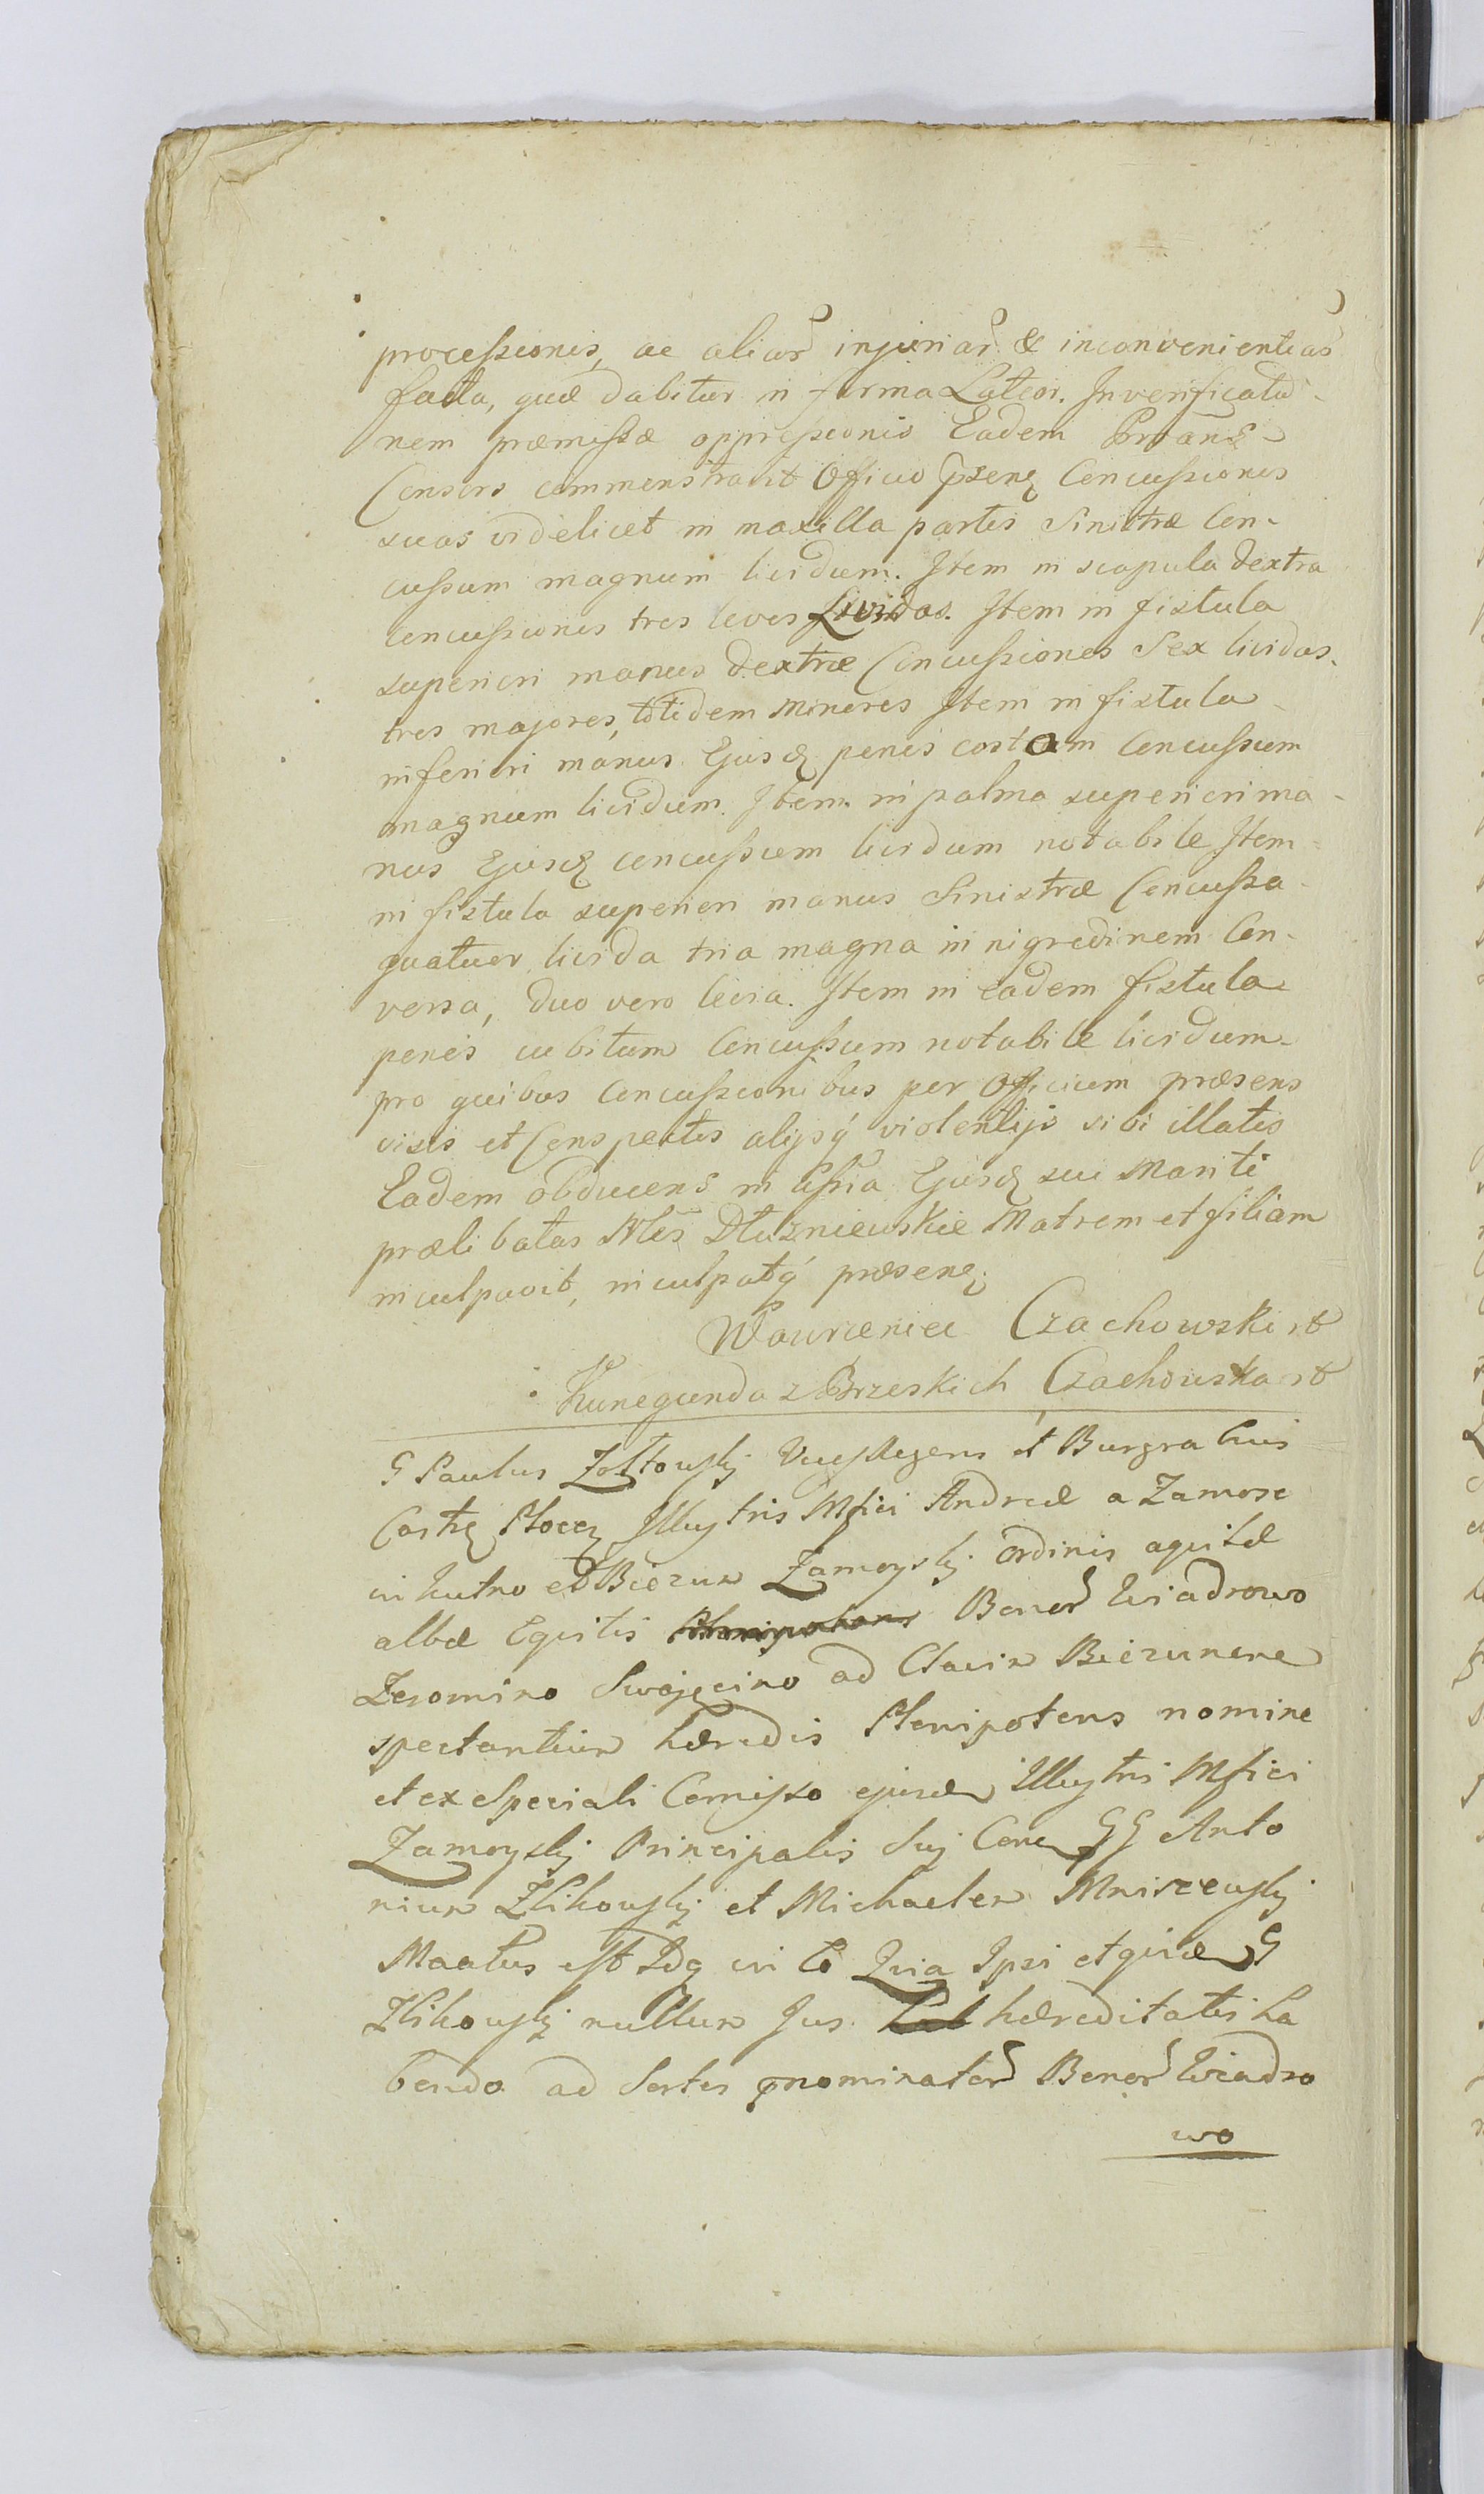 processionis, ac aliar injuriar & inconvenientias
facta, quæ dabitur in forma Latior. In verificatio-
nem præmissæ oppressionis Eadem
Consors commonstravit Officio psenq Concussiones
suas videlicet in maxilla partis Sinistræ Con-
cussum magnum lividum. Item in scapula dextra
concussiones tres leves Lividas. Item in fistula
superiori manus dextræ Concussiones Sex lividas.
tres majores, totidem Minores Item in fistula
inferiori manus Ejusd penes costam Concussum
magnum lividum. Item in palma superiori ma-
nus Ejusd concussum lividum notabile Item
in fistula superiori manus Sinistræ Concussa
quatuor livida tria magna in nigredinem Con-
versa, duo vero levia. Item in eadem fistula
penes cubitum Concussum notabile lividum
pro quibus Concussionibus per Officium præsens
visis et Conspectis alijsq violentijs sibi illatis
Eadem obducens in assria Ejusd sui Mariti
prælibatas Nles Dłuzniewskie Matrem et filiam
inculpavit, inculpatq præsenq.
Wawrzeniec Czachowski
Kunegunda z Brzeskich Czachowska
G Paulus Zołtowskj Vicesregens et Burgrabius
Castrq Plocen Illustris Mfici Andreæ a Zamosc
in Kutno et Biezun Zamoyskj ordinis aquilæ
albæ Equitis Plenipotens Bonor Wiadrowo
Zeromino Swojęcino ad Clavin Biezunen
spectantium hæredis Plenipotens nomine
et ex Speciali Comisso ejusdem Illustris Mfici
Zamoyskj Principalis Suj Con GG Anto
nium Zlikowskj et Michaelem Mniscewskj
Mtatus est Idq in eo Quia Ipsi et quidem G
Zlikowskj nullum Jus hæreditatis ha
bendo ad Sortes nominator Bonor Wiadro
wo